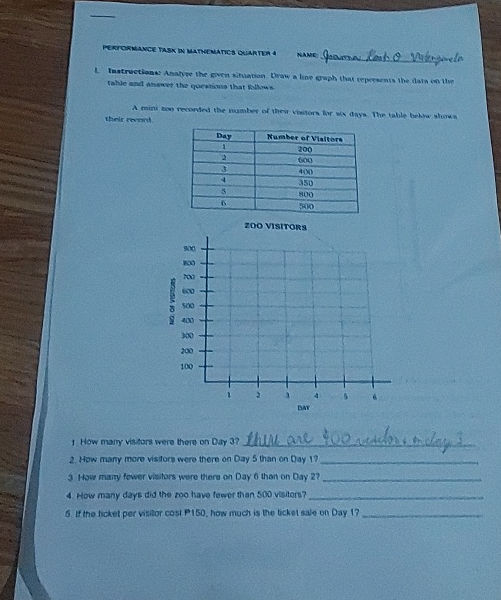 PERFORMANCE TASK IN MATHEMATICS QUARTER 4 NAME:
I. Instructions: Analyze the given situation. Draw a line graph that represents the data on the
table and answer the questions that follows.
A mini zoo recorded the number of their visitors for six days. The table below shows
their record.
Day Number of Visitors
1 200
2 600
3 400
4 350
5 800
6 500
ZOO VISITORS
900
800
700
600
500
400
300
200
100
NO. OF VISITORS
1 2 3 4 5 6
DAY
1. How many visitors were there on Day 3? there are 400 visitors on day 3
2. How many more visitors were there on Day 5 than on Day 1?
3. How many fewer visitors were there on Day 6 than on Day 2?
4. How many days did the zoo have fewer than 500 visitors?
5. If the ticket per visitor cost ₱150, how much is the ticket sale on Day 1?